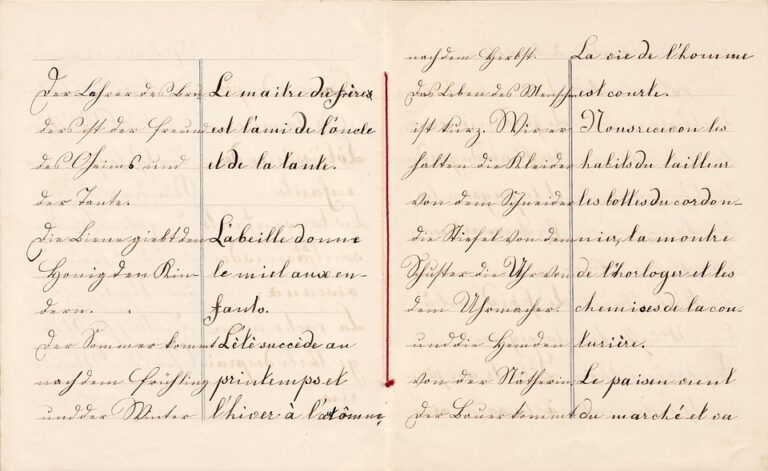 Der Lehrer des Bru
ders ist der Freund
des Oheims und
der Tante.
Die Biene giebt den
Honig den Kin-
dern.
Der Sommer kommt
nach dem Frühling
und der Winter
Le maitre du frère
est l'ami de l'oncle
et de la tante.
L'abeille donne
le miel aux en-
fants.
L'été succède au
printemps et
l'hiver à
nach dem Herbst.
Das Leben des Menschen
ist kurz. Wir er
halten die Kleider
von dem Schneider
die Stiefel von dem
Schuster die Uhr von
dem Uhrmacher.
und die Hemden
von der Nätherin.
Der Bauer kommt
La vie de l'homme
est courte.
Nous recevon les
habits du tailleur
les bottes du cordon-
nier, la montre
de l'horloger et les
chemises de la cou
turière.
Le paisen vient
du marché et va